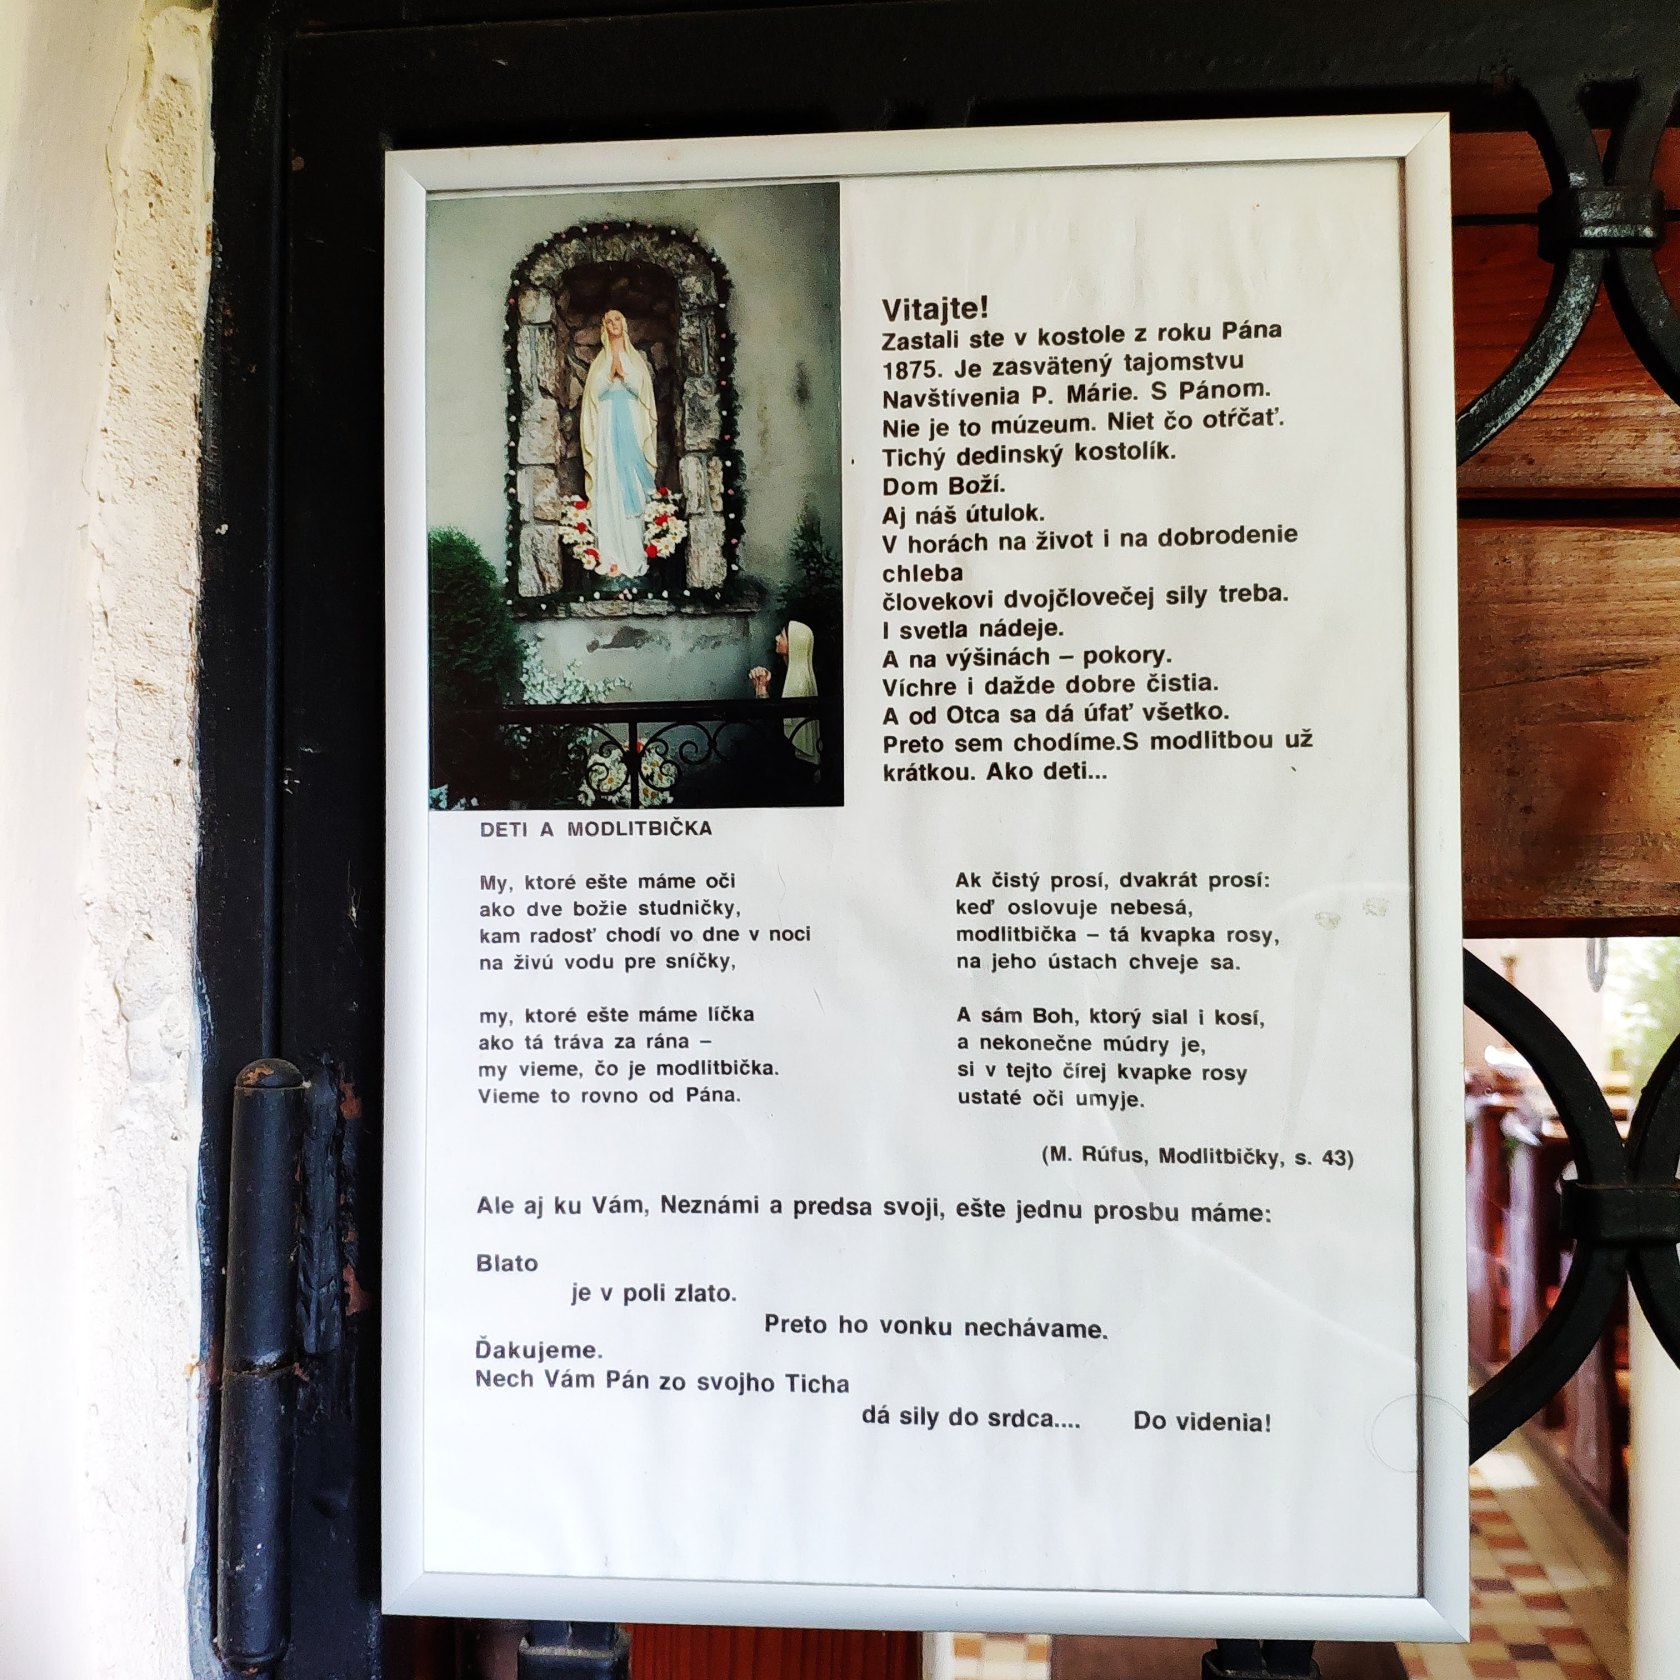 Vitajte!
Zastali ste v kostole z roku Pána
1875. Je zasvätený tajomstvu
Navštívenia P. Márie. S Pánom.
Nie je to múzeum. Niet čo otŕčať.
Tichý dedinský kostolík.
Dom Boží.
Aj náš útulok.
V horách na život i na dobrodenie
chleba
človekovi dvojčlovečej sily treba.
I svetla nádeje.
A na výšinách – pokory.
Víchre i dažde dobre čistia.
A od Otca sa dá úfať všetko.
Preto sem chodíme.S modlitbou už
krátkou. Ako deti...
DETI A MODLITBIČKA
My, ktoré ešte máme oči
ako dve božie studničky,
kam radosť chodí vo dne v noci
na živú vodu pre sníčky,
my, ktoré ešte máme líčka
ako tá tráva za rána –
my vieme, čo je modlitbička.
Vieme to rovno od Pána.
Ak čistý prosí, dvakrát prosí:
keď oslovuje nebesá,
modlitbička – tá kvapka rosy,
na jeho ústach chveje sa.
A sám Boh, ktorý sial i kosí,
a nekonečne múdry je,
si v tejto čírej kvapke rosy
ustaté oči umyje.
(M. Rúfus, Modlitbičky, s. 43)
Ale aj ku Vám, Neznámi a predsa svoji, ešte jednu prosbu máme:
Blato
je v poli zlato.
Preto ho vonku nechávame.
Ďakujeme.
Nech Vám Pán zo svojho Ticha
dá sily do srdca.... Do videnia!